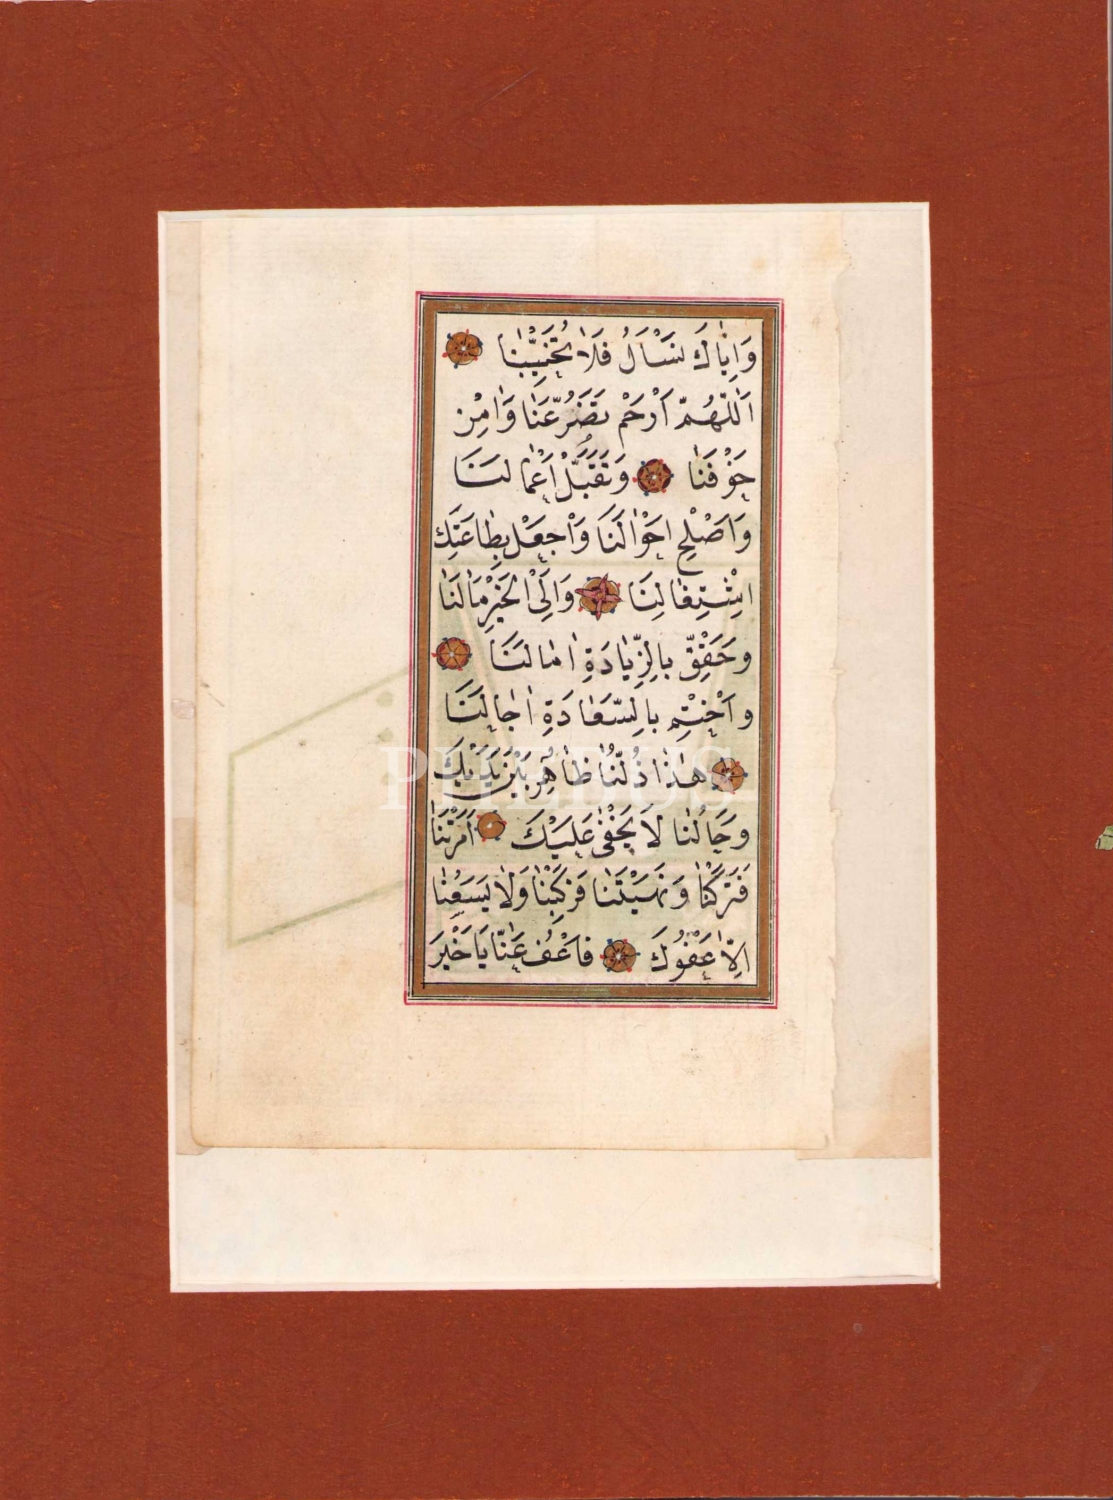 وَاِيَّاكَ نَسْأَلُ فَلَا تُخَيِّبْنَا
اَللّٰهُمَّ اَرْحَمْ تَضَرُّعَنَا وَاٰمِنْ
خَوْفَنَا وَتَقَبَّلْ اَعْمَالَنَا
وَاَصْلِحْ اَحْوَالَنَا وَاْجعَلْ بِطَاعَتِكَ
اشْتِغَالَنَا وَاِلَى الْخَيْرِ مَاٰلَنَا
وحَقِّقْ بِالزِّيَادَةِ اٰمَالَنَا
واَخْتِمْ بِالسَّعَادَةِ اٰجَالَنَا
هٰذَا ذُلُّنَا ظَاهِرٌ بَيْنَ يَدَيْكَ
وحَالُنَا لَا يَخْفٰى عَلَيْكَ اَمَرْتَنَا
فَتَرَكْنَا وَنَهَيْتَنَا فَرَكِبْنَا وَلَا يَسَعُنَا
اِلَّا عَفْوُكَ فَاعْفُ عَنَّا يَا خَيْرَ
PHEBUS